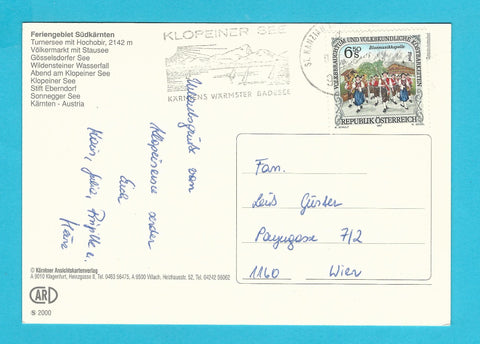 Feriengebiet Südkärnten
Turnersee mit Hochobir, 2142 m
Völkermarkt mit Stausee
Gösselsdorfer See
Wildensteiner Wasserfall
Abend am Klopeiner See
Klopeiner See
Stift Eberndorf
Sonnegger See
Kärnten - Austria
KLOPEINER SEE
KÄRNTENS WÄRMSTER BADESEE
ST. KANZIAN
VOLKSBRAUCHTUM UND VOLKSKUNDLICHE KOSTBARKEITEN
6.50 S
Blasmusikkapelle
REPUBLIK ÖSTERREICH
Urlaubsgrüße vom
Klopeinersee senden
Euch
Hans, Julia, Brigitte u.
Fam.
Günter
Payergasse 7/2
1160 Wien
© Kärntner Ansichtskartenverlag
A 9010 Klagenfurt, Heinzgasse 8, Tel. 0463 56475, A-9500 Villach, Heizhausstr. 52, Tel. 04242 56062
CARD
S 2000